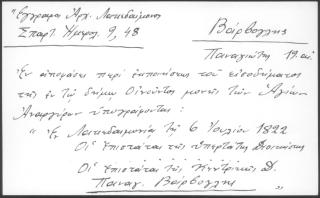 "Έγγραφα Αρχ. Λακεδαίμονος
Σπαρτ. Ημερολ. 9, 48
Βάρβογλης
Παναγιώτης 19. αι.
Εν αποφάσει περί εκποιήσεως του εισοδήματος
της εν τω δήμω Οινούντος μονής των Αγίων
Αναργύρων υπογράφονται:
"Εν Λακεδαιμονία τη 6 Ιουλίου 1822
Οι Επιστάται της υπερτάτης Διοικήσεως
Οι Επιστάται της Κεντρικής Δ.
Παναγ. Βάρβογλης "